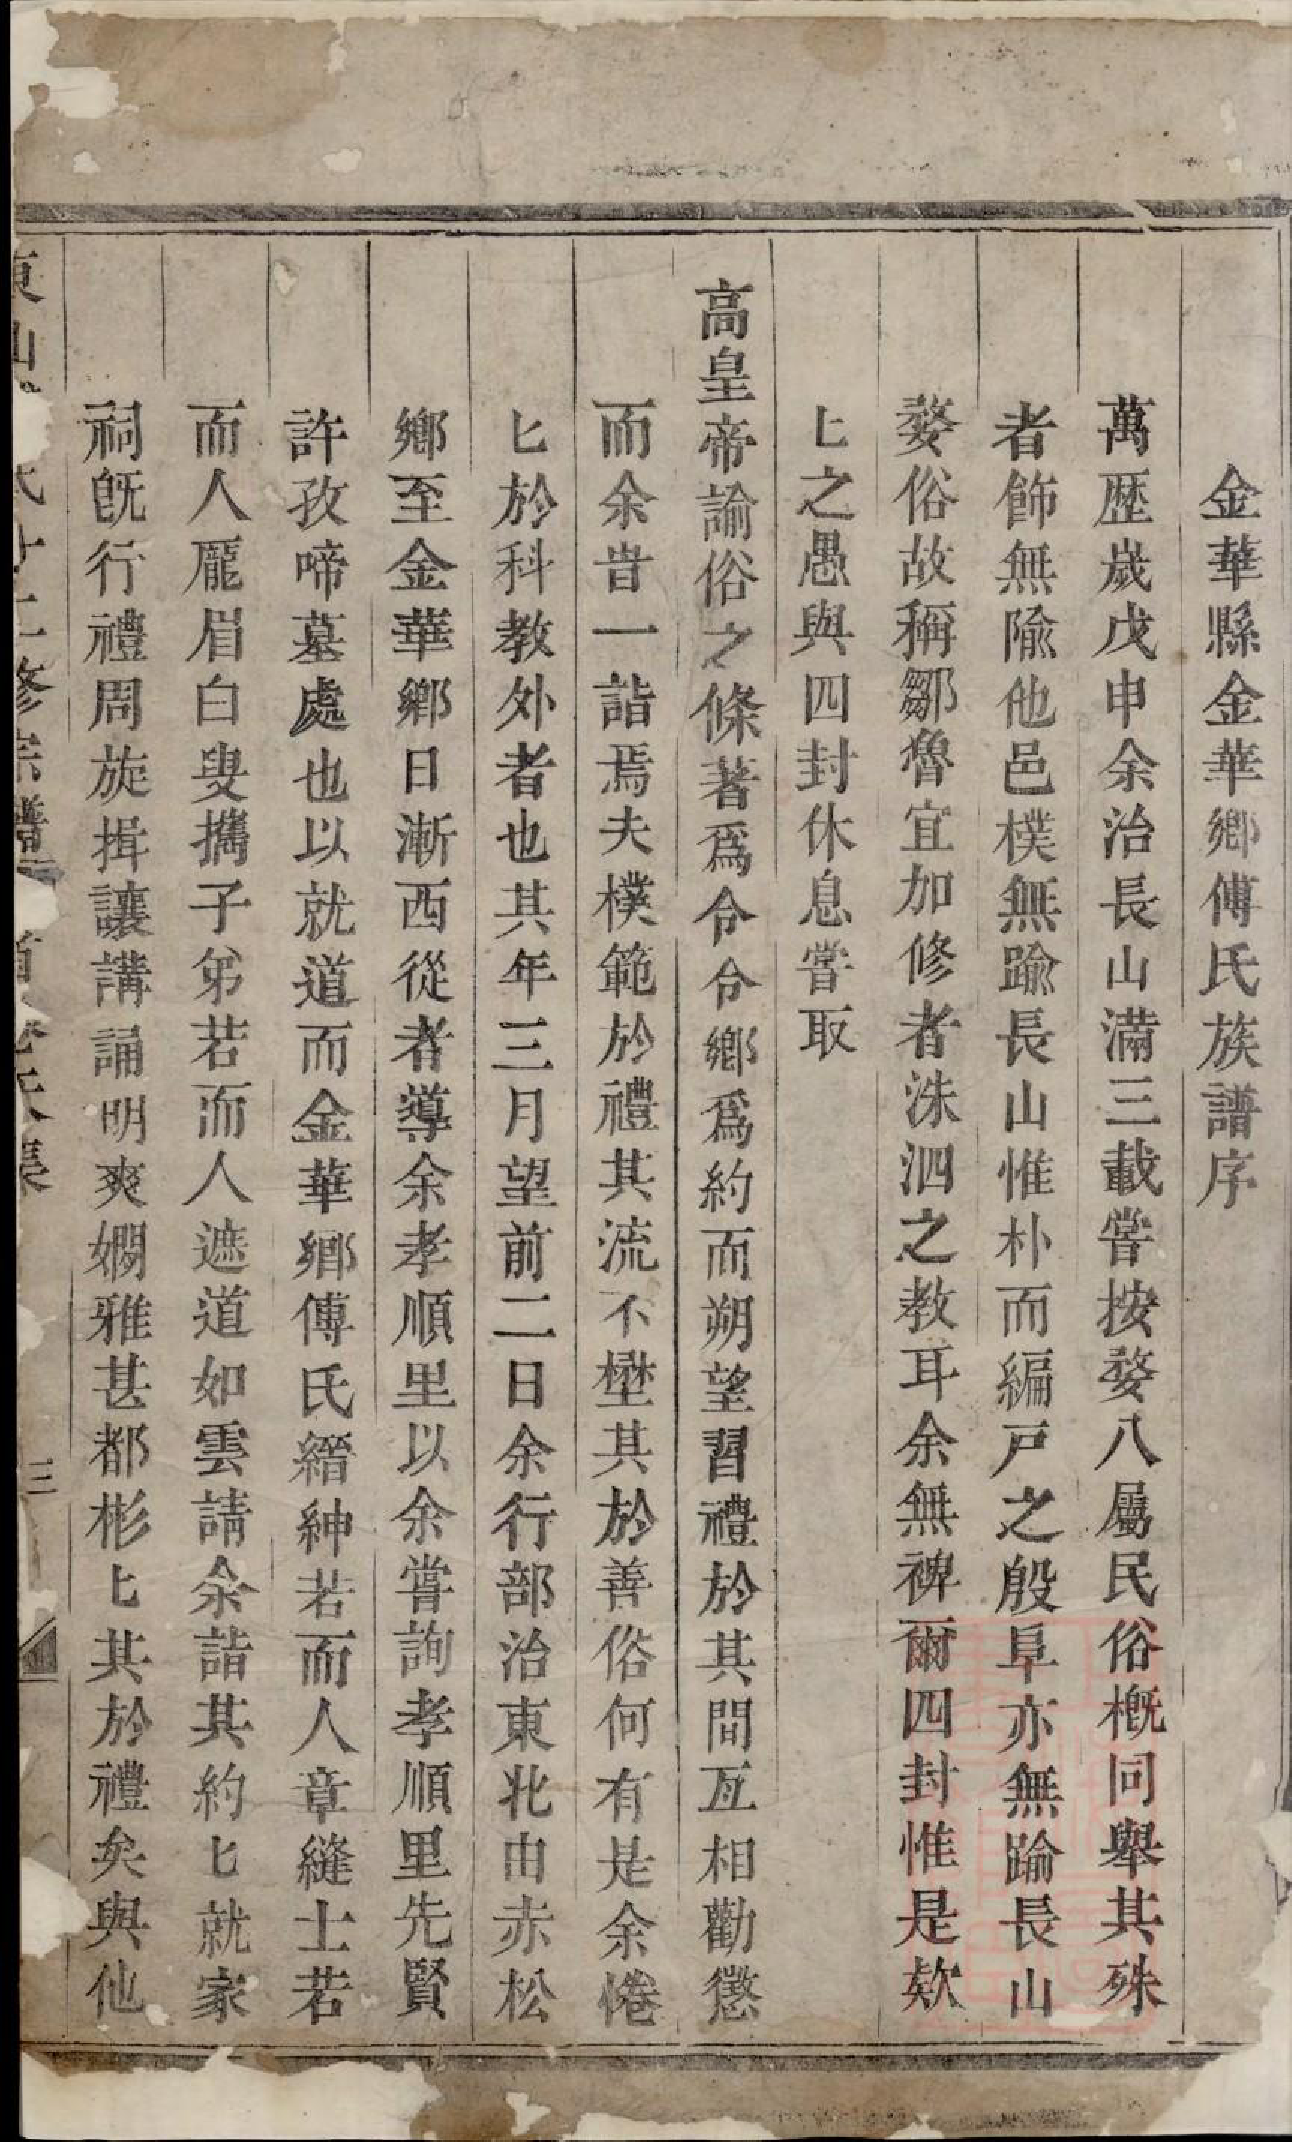 金華縣金華鄉傅氏族譜序
萬歷歲戊申余治長山滿三載嘗按婺八屬民俗槪同舉其殊
者飾無隃他邑樸無踰長山惟朴而編戸之殷阜亦無踰長山
婺俗故稱鄒魯宜加修者洙泗之教耳余無裨爾四封惟是欸
匕之愚與四封休息嘗取
高皇帝諭俗之條著爲令令鄉爲約而朔望習禮於其間互相勸懲
而余旹一詣焉夫樸範於禮其流不壄其於善俗何有是余惓
匕於科教外者也其年三月望前二日余行部治東北由赤松
鄉至金華鄉日漸西從者導余孝順里以余嘗詢孝順里先賢
許孜啼墓處也以就道而金華鄉傅氏縉紳若而人章縫士若
而人厖眉白叟攜子弟若而人遮道如雲請余詣其約匕就家
祠旣行禮周旋揖讓講誦明爽嫺雅甚都彬匕其於禮矣與他
三